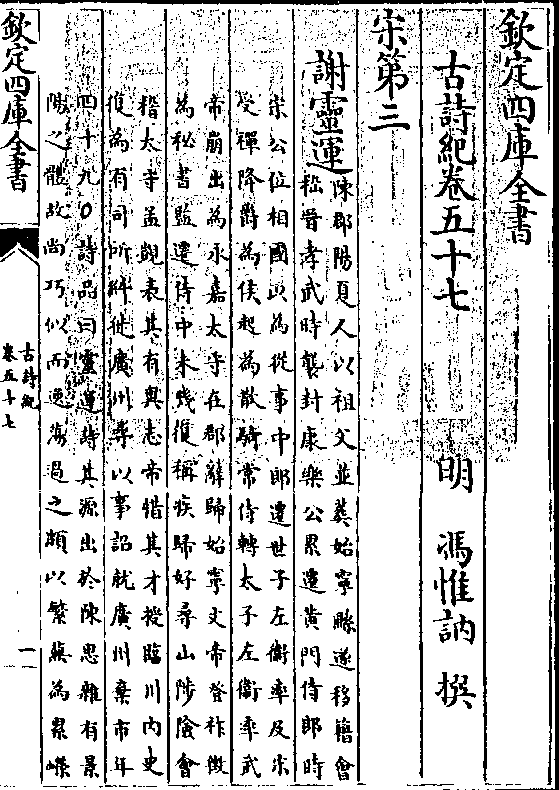 欽定四庫全書
古詩紀卷五十七
明 馮惟訥 撰
宋第三
謝靈運
陳郡陽夏人以祖父並葬始寧縣遂移籍會
稽晉孝武時襲封康樂公累遷黄門侍郎時
宋公位相國以為從事中郎遷世子左衛率及宋
受禪降爵為侯起為散騎常侍轉太子左衛率武
帝崩出為永嘉太守在郡辭歸始寧文帝登祚徴
為秘書監遷侍中未幾復稱疾歸好尋山陟險會
稽太守孟顗表其有異志帝惜其才授臨川内史
復為有司所糾徙廣州尋以事詔就廣州棄市年
四十九○詩品曰靈運詩其源出於陳思雜有景
陽之體故尚巧似而逸蕩過之頗以繁蕪為累嶸
欽定四庫全書
古詩紀
卷五十七
一